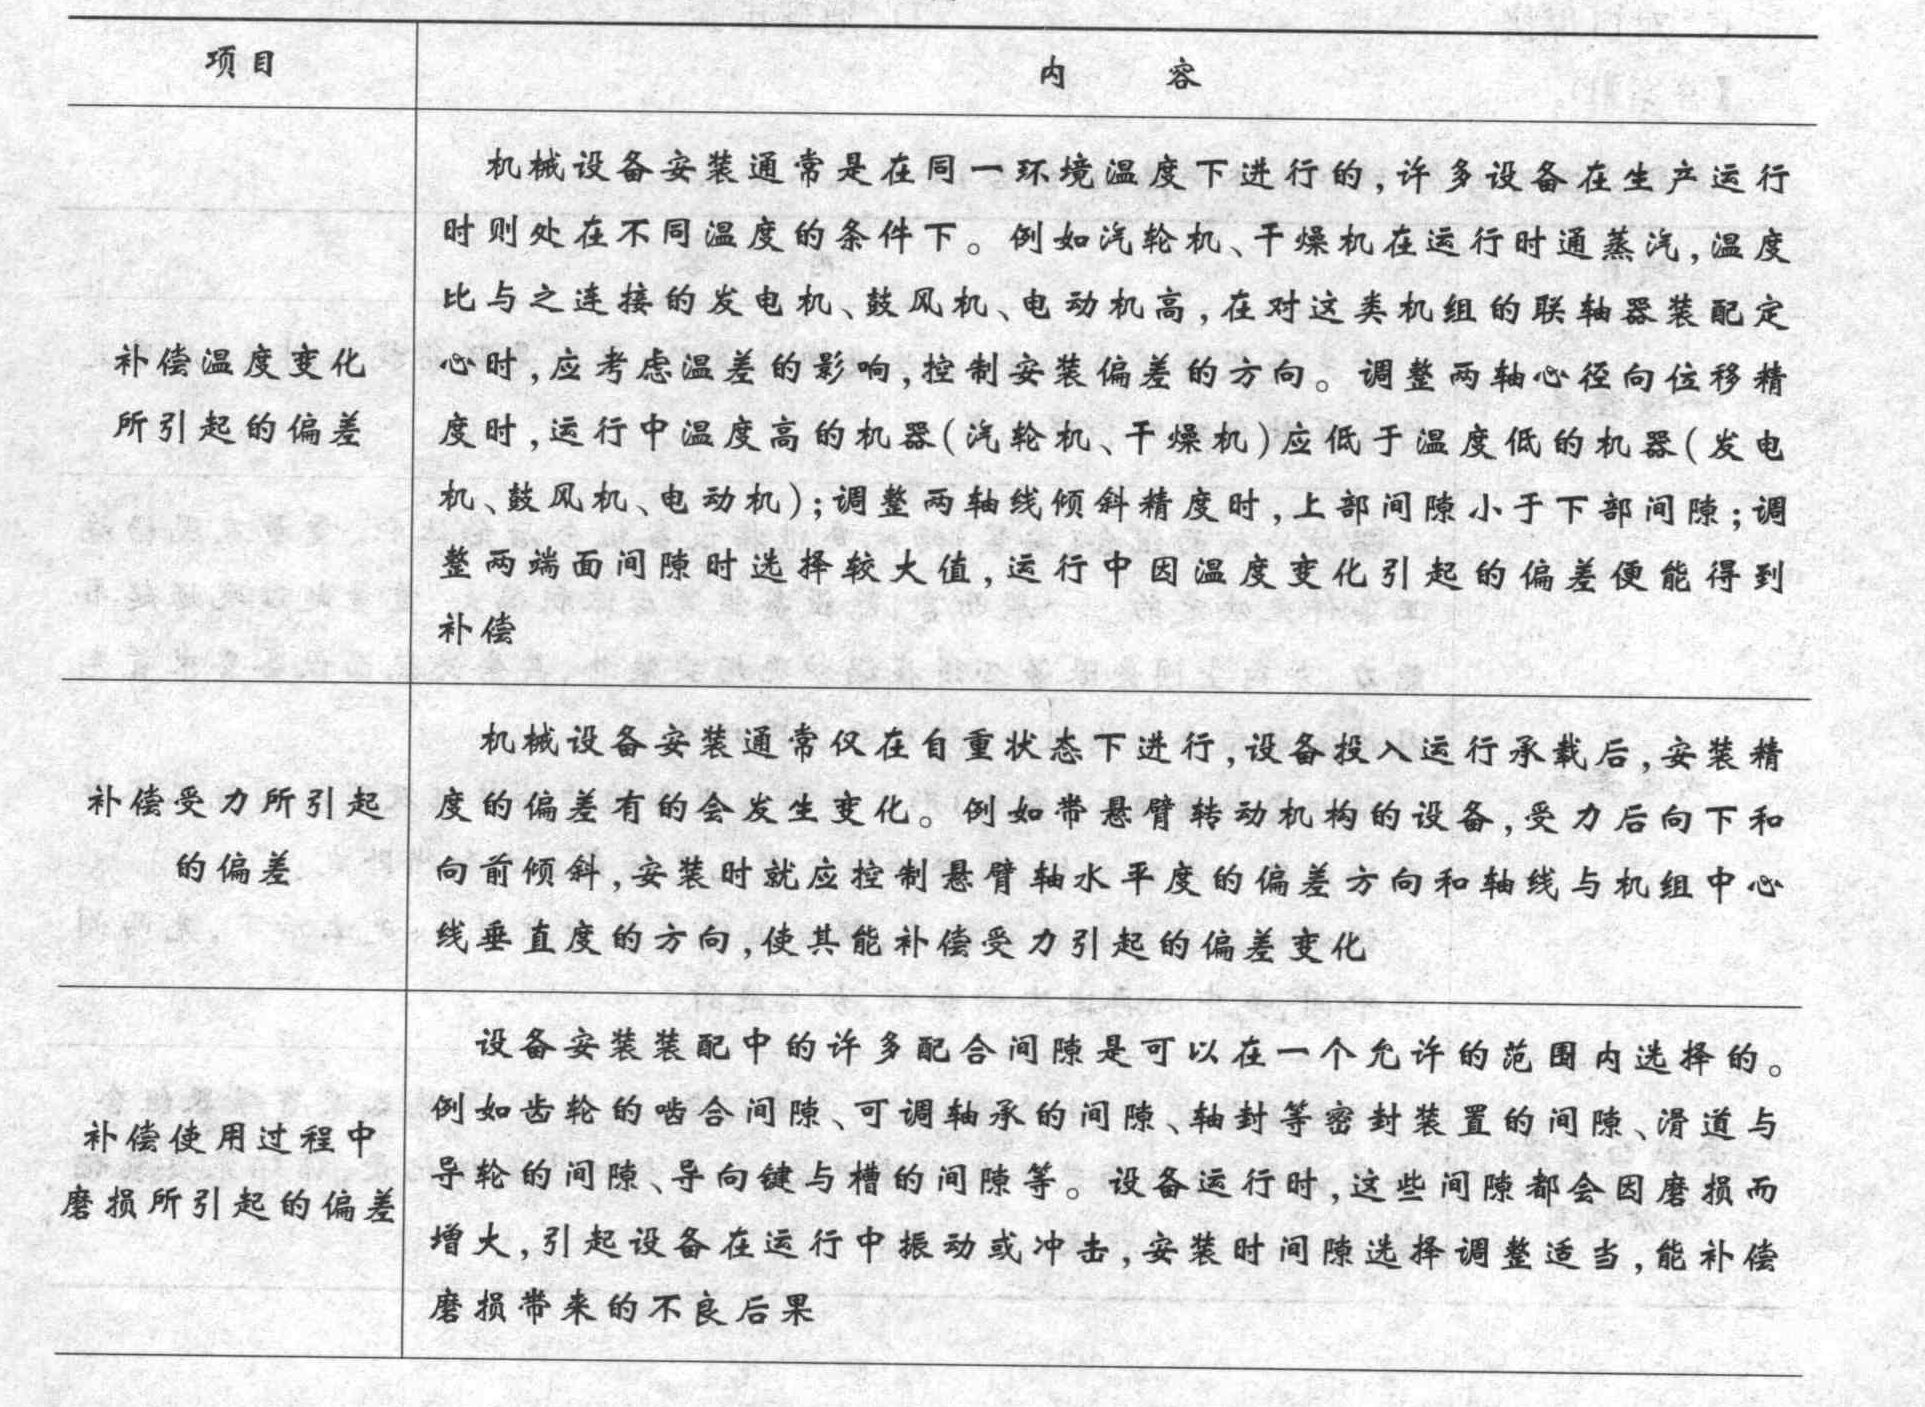 项目
内 容
补偿温度变化
所引起的偏差
机械设备安装通常是在同一环境温度下进行的,许多设备在生产运行
时则处在不同温度的条件下。例如汽轮机、干燥机在运行时通蒸汽,温度
比与之连接的发电机、鼓风机、电动机高,在对这类机组的联轴器装配定
心时,应考虑温差的影响,控制安装偏差的方向。调整两轴心径向位移精
度时,运行中温度高的机器(汽轮机、干燥机)应低于温度低的机器(发电
机、鼓风机、电动机);调整两轴线倾斜精度时,上部间隙小于下部间隙;调
整两端面间隙时选择较大值,运行中因温度变化引起的偏差便能得到
补偿
补偿受力所引起
的偏差
机械设备安装通常仅在自重状态下进行,设备投入运行承载后,安装精
度的偏差有的会发生变化。例如带悬臂转动机构的设备,受力后向下和
向前倾斜,安装时就应控制悬臂轴水平度的偏差方向和轴线与机组中心
线垂直度的方向,使其能补偿受力引起的偏差变化
补偿使用过程中
磨损所引起的偏差
设备安装装配中的许多配合间隙是可以在一个允许的范围内选择的。
例如齿轮的啮合间隙、可调轴承的间隙、轴封等密封装置的间隙、滑道与
导轮的间隙、导向键与槽的间隙等。设备运行时,这些间隙都会因磨损而
增大,引起设备在运行中振动或冲击,安装时间隙选择调整适当,能补偿
磨损带来的不良后果